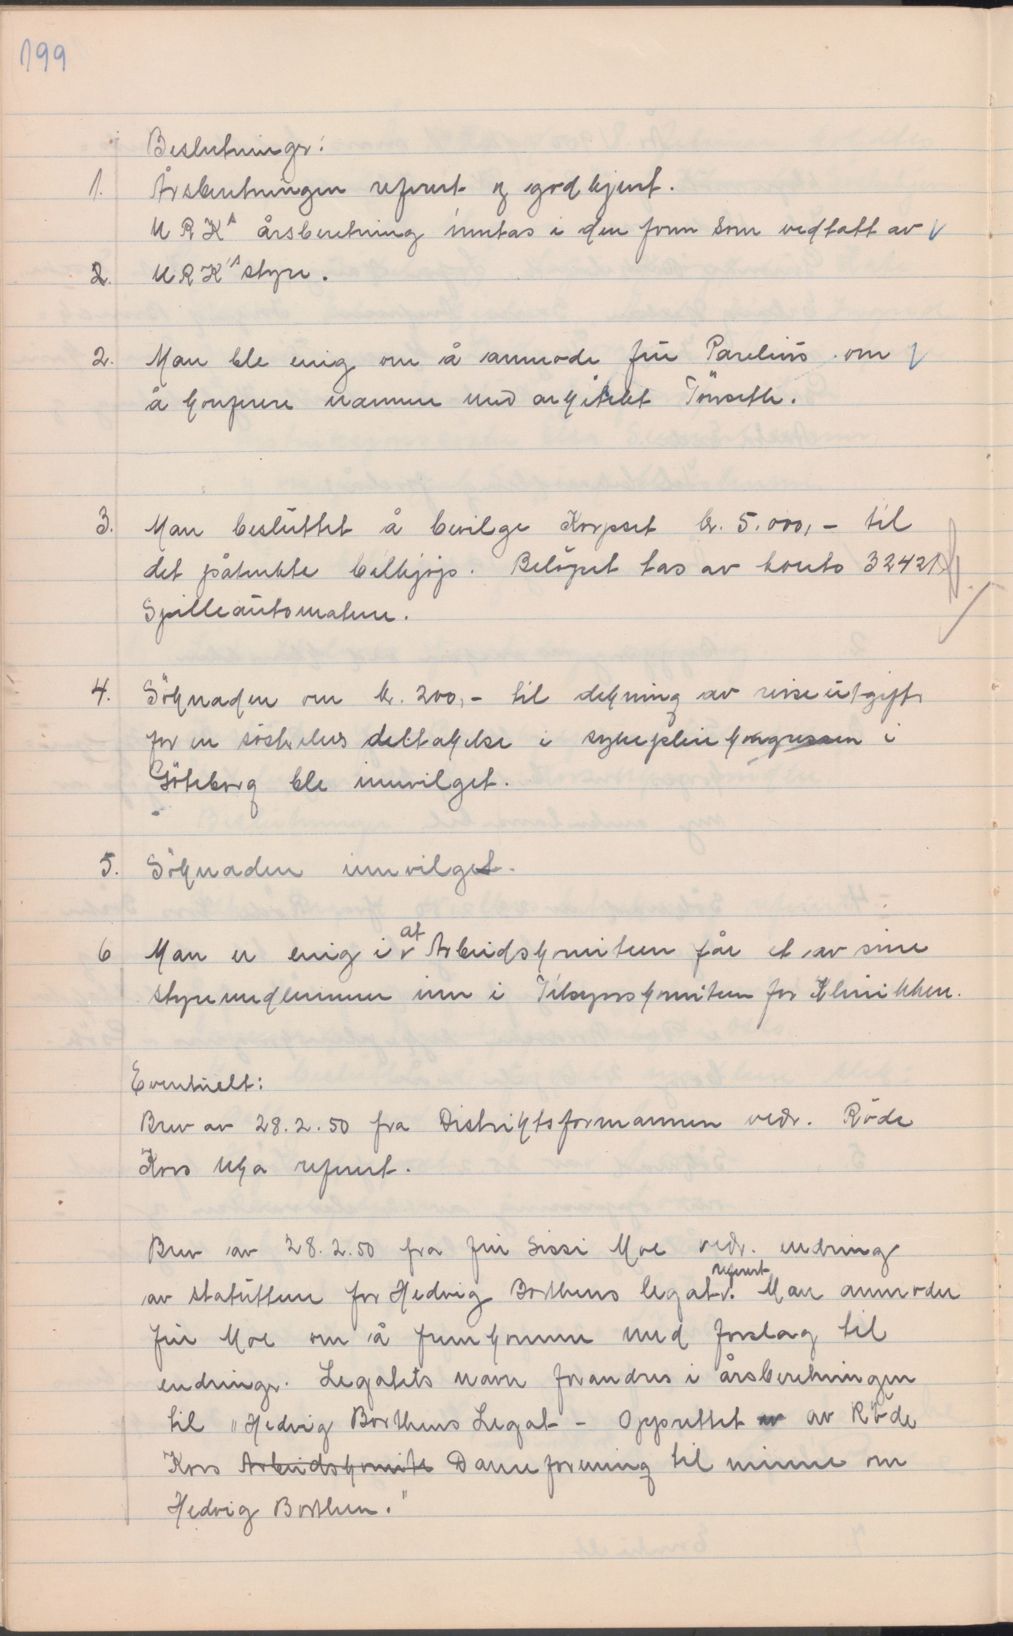 199
Beslutninger:
1. Årsberetningen referert og godkjent.
U R K^s årsberetning inntas i den form som vedtatt av
2. U R K^s styre.
2. Man ble enig om å anmode fru Parelius om
å konferere nærmere med arkitekt Tönseth.
3. Man besluttet å bevilge Korpset kr. 5.000,- til
det påtenkte bilkjøp. Beløpet tas av konto 32421
Spilleautomatene.
4. Söknaden om kr. 200,- til dekning av reiseutgifter
for en søsters deltakelse i sykepleiekongressen i
Göteborg ble innvilget.
5. Söknaden innvilget.
6 Man er enig i at Arbeidskomiteen får et av sine
styremedlemmer inn i Tilsynskomiteen for Klinikken.
Eventuelt:
Brev av 28.2.50 fra Distriktsformannen vedr. Röde
Kors Uka referert.
Brev av 28.2.50 fra fru Sissi Moe vedr. endring
av statuttene for Hedvig Borthens legat referert. Man anmoder
fru Moe om å fremkomme med forslag til
endringer. Legatets navn forandres i årsberetningen
til "Hedvig Borthens Legat - Opprettet av Röde
Kors Arbeidskomite Dameforening til minne om
Hedvig Borthen."